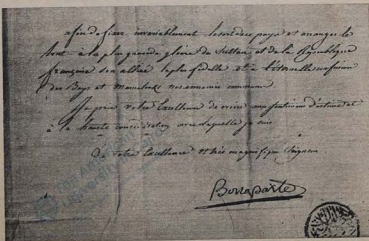 afin de fixer invariablement le sort de ce pays et arranger le
tout à la plus grande gloire du Sultan et de la République
françoise son alliée la plus fidelle et à l'éternelle confusion
des Beys et Mameluks nos ennemis communs
Je prie votre Excellence de croire aux sentimens d'estime et
à la haute considération avec laquelle je suis
De votre Excellence et très magnifique Seigneur
Bonaparte